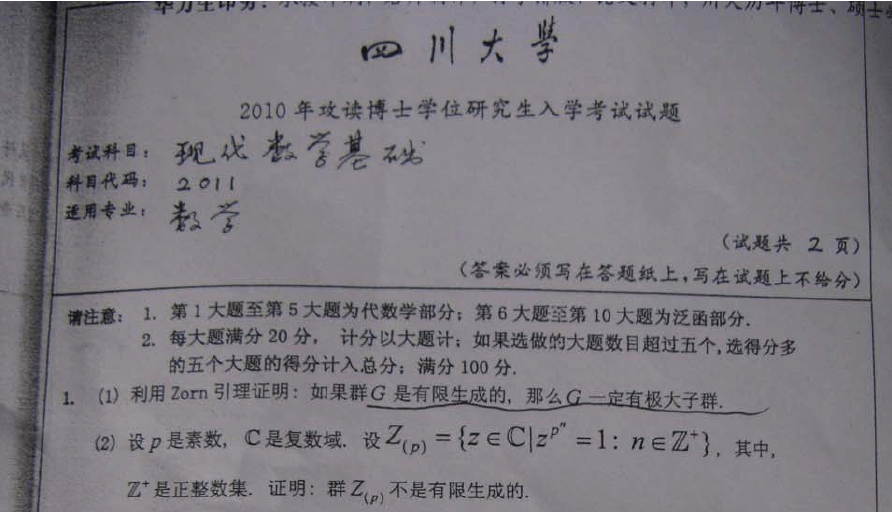 四川大學
2010 年攻读博士学位研究生入学考试试题
考试科目: 现代数学基础
科目代码: 2011
适用专业: 数学
(试题共 2 页)
(答案必须写在答题纸上,写在试题上不给分)
请注意: 1. 第 1 大题至第 5 大题为代数学部分; 第 6 大题至第 10 大题为泛函部分.
2. 每大题满分 20 分, 计分以大题计; 如果选做的大题数目超过五个,选得分多
的五个大题的得分计入总分; 满分 100 分.
1. (1) 利用 Zorn 引理证明: 如果群G 是有限生成的, 那么G 一定有极大子群.
(2) 设 p 是素数, ℂ是复数域. 设 Z₍ₚ₎ = {z ∈ ℂ|z^{pⁿ} = 1: n ∈ ℤ⁺}, 其中,
ℤ⁺ 是正整数集. 证明: 群 Z₍ₚ₎ 不是有限生成的.